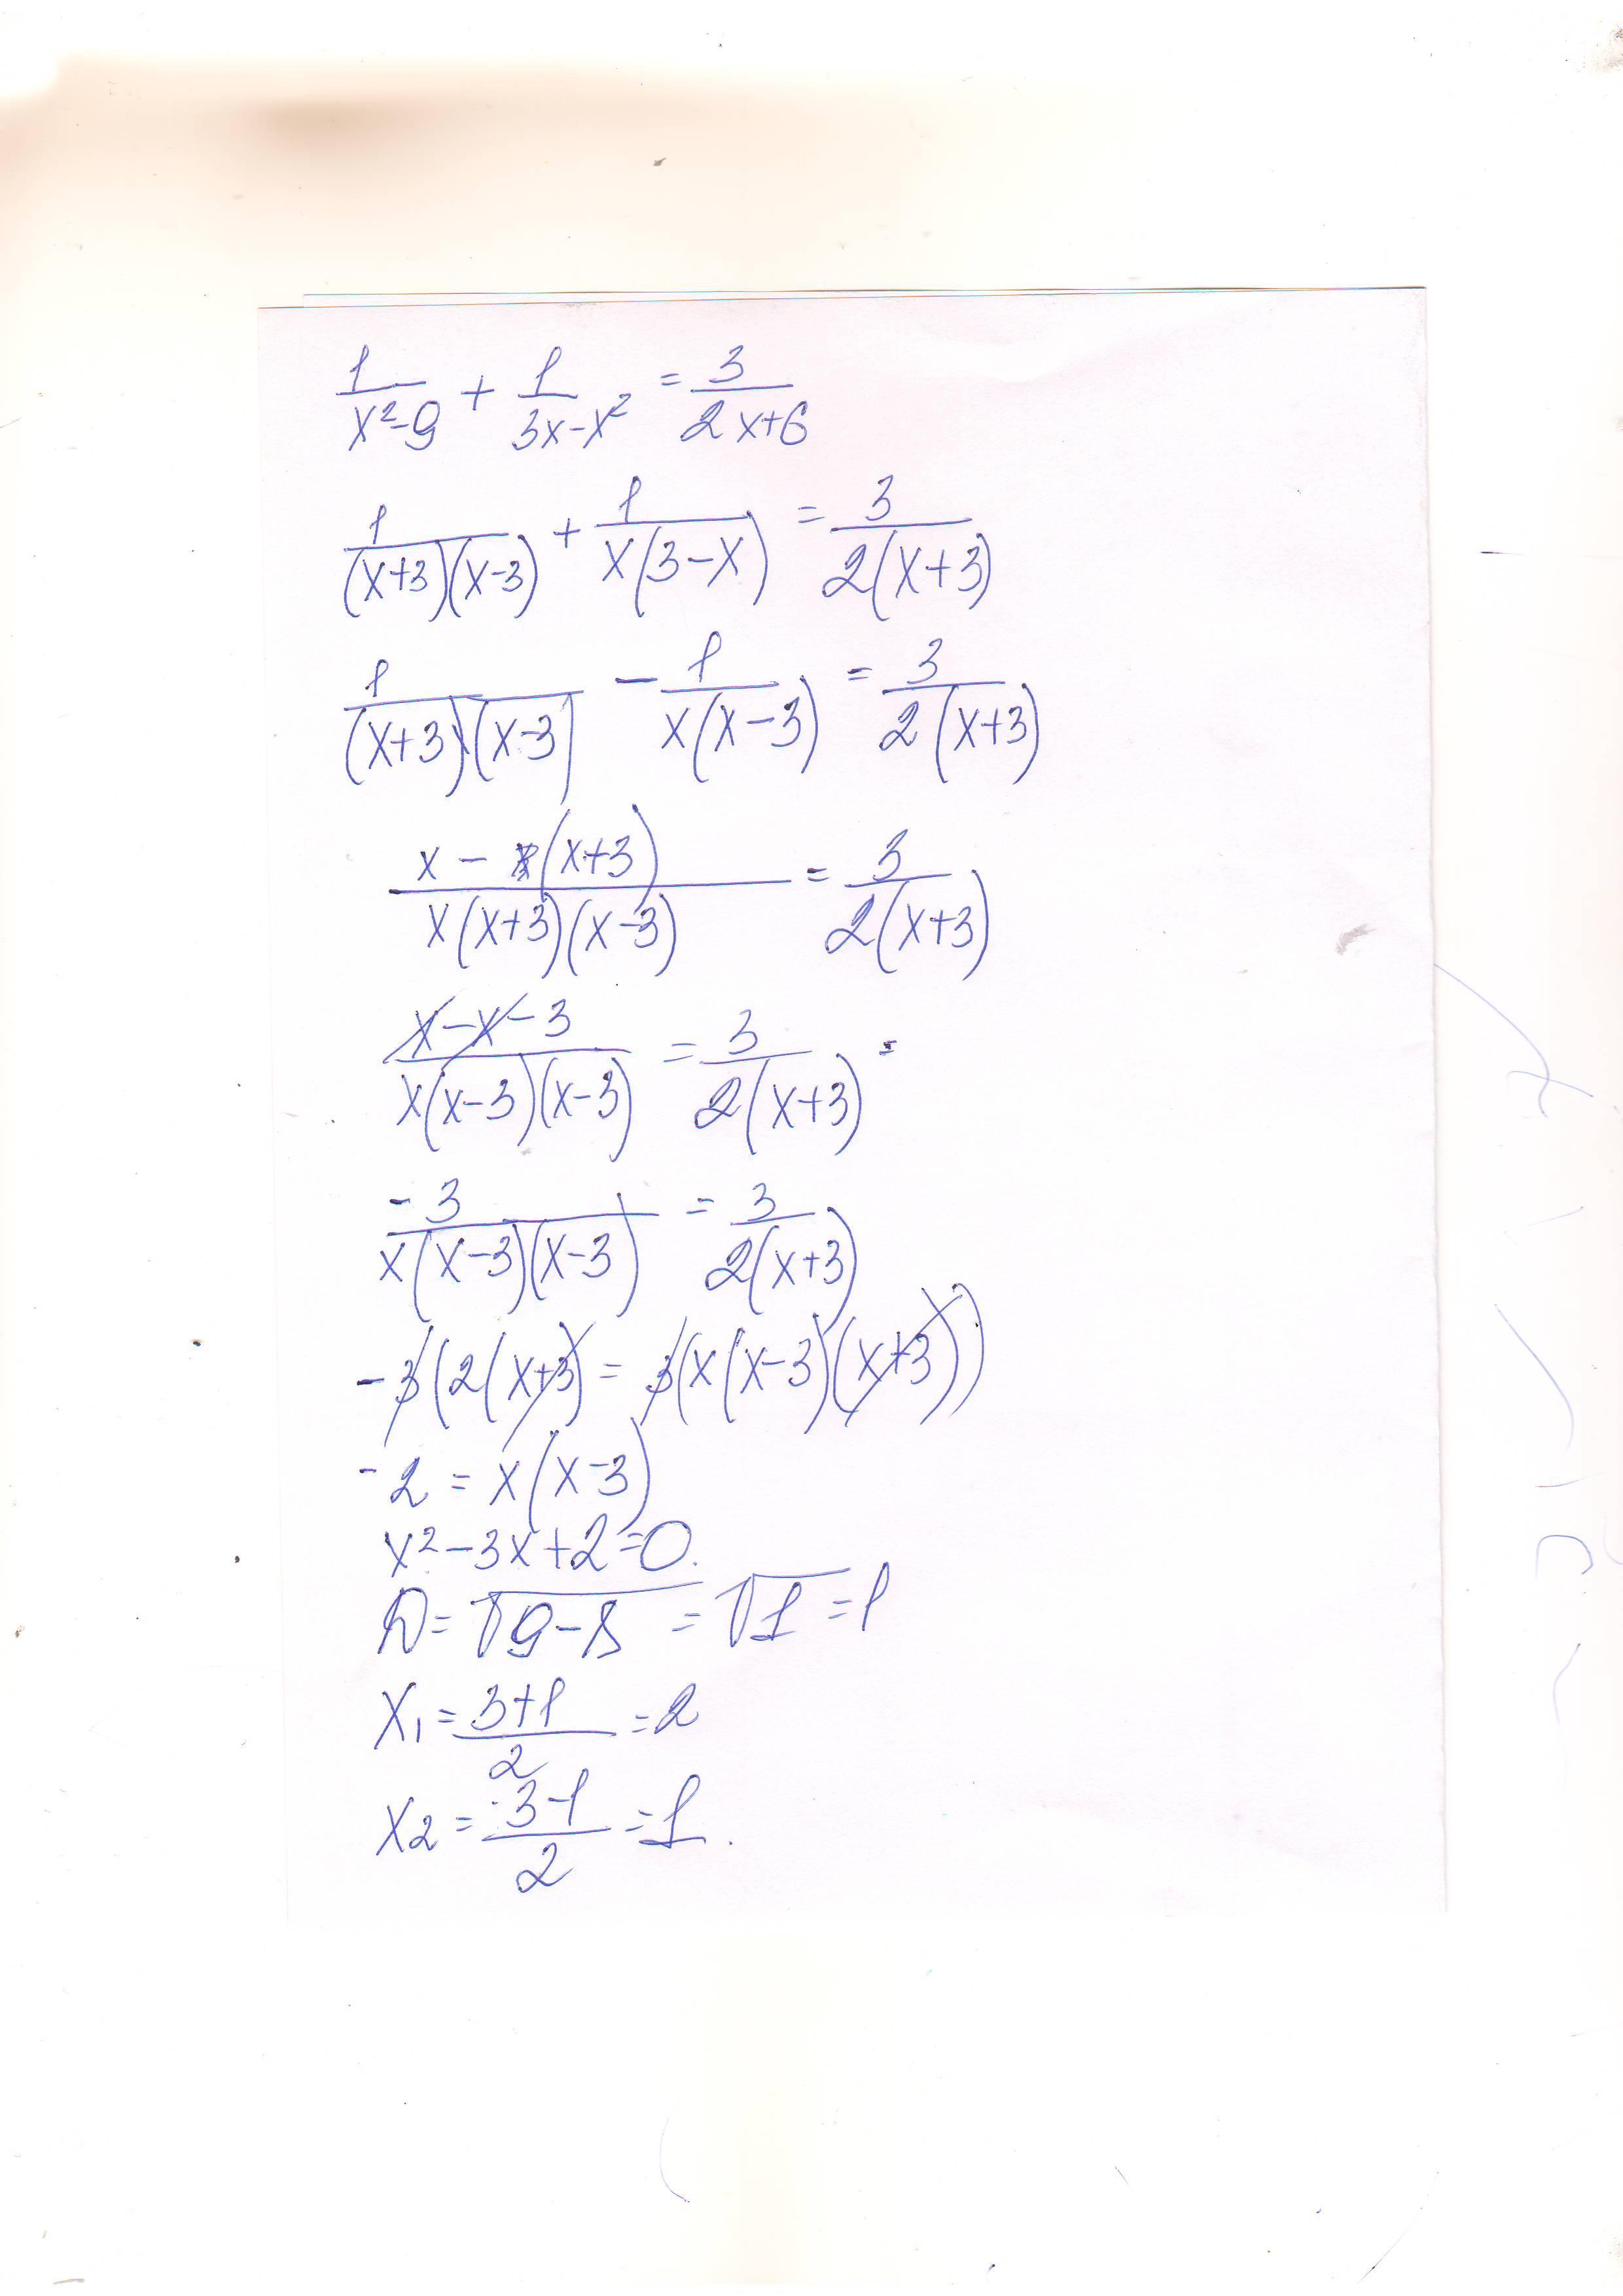 1/(x²-9) + 1/(3x-x²) = 3/(2x+6)
1/((x+3)(x-3)) + 1/(x(3-x)) = 3/(2(x+3))
1/((x+3)(x-3)) - 1/(x(x-3)) = 3/(2(x+3))
(x-(x+3))/(x(x+3)(x-3)) = 3/(2(x+3))
(x-x-3)/(x(x-3)(x-3)) = 3/(2(x+3)) =
-3/(x(x-3)(x-3)) = 3/(2(x+3))
-3(2(x+3) = 3(x(x-3)(x+3))
-2 = x(x-3)
x²-3x+2=0.
D = √(9-8) = √1 = 1
x₁ = (3+1)/2 = 2
x2 = (3-1)/2 = 1.